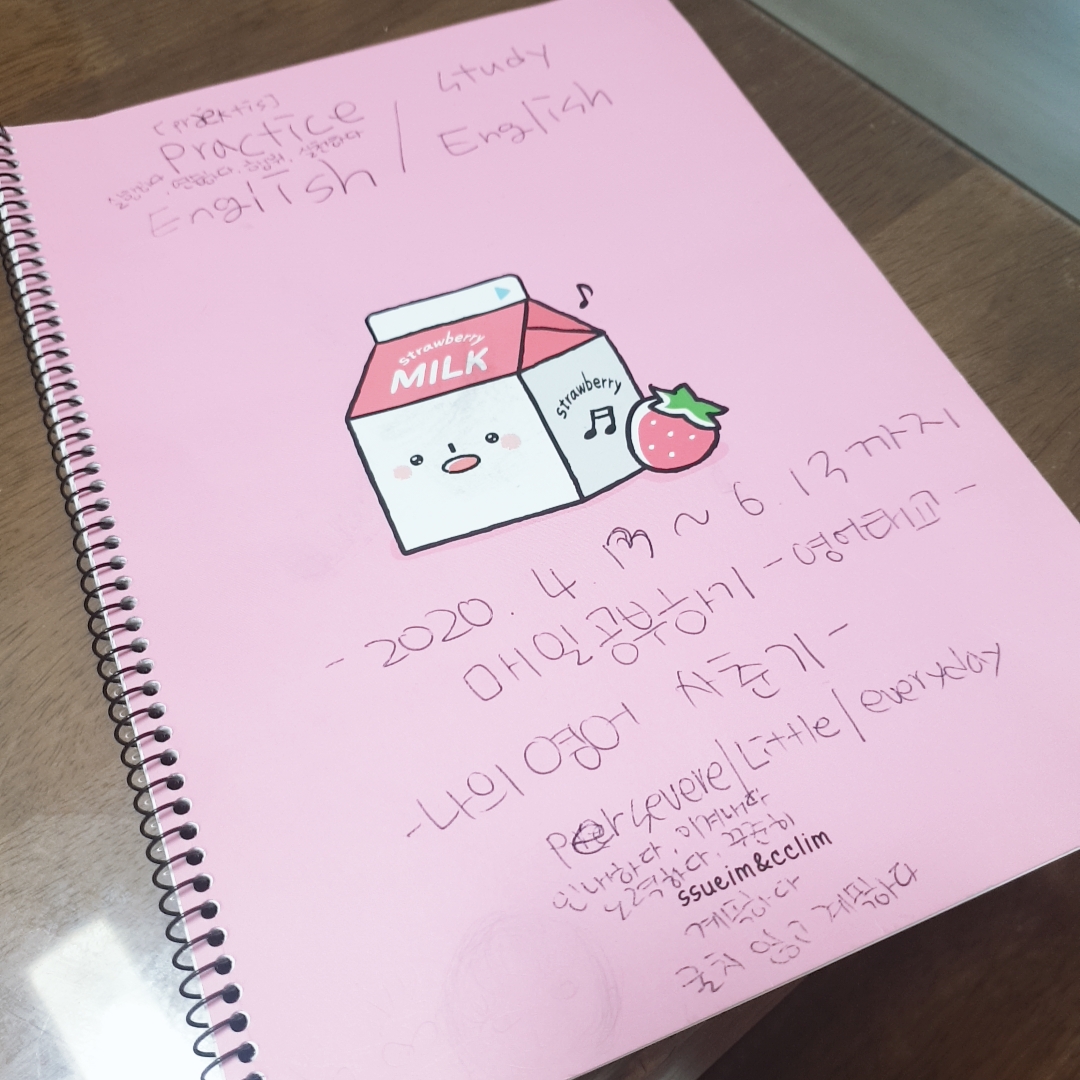 [præktis]
Practice / study
실행하다, 연습하다, 실천하다
English / English
strawberry
MILK
strawberry
- 2020. 4. 13 ~ 6. 13까지
매일 공부하기 - 영어타고 -
- 나의 영어 사춘기 -
Persevere / Little / everyday
인내하다, 이겨내다
노력하다. 꾸준히
ssueim&cclim
계속하다
굴치 않고 계속하다